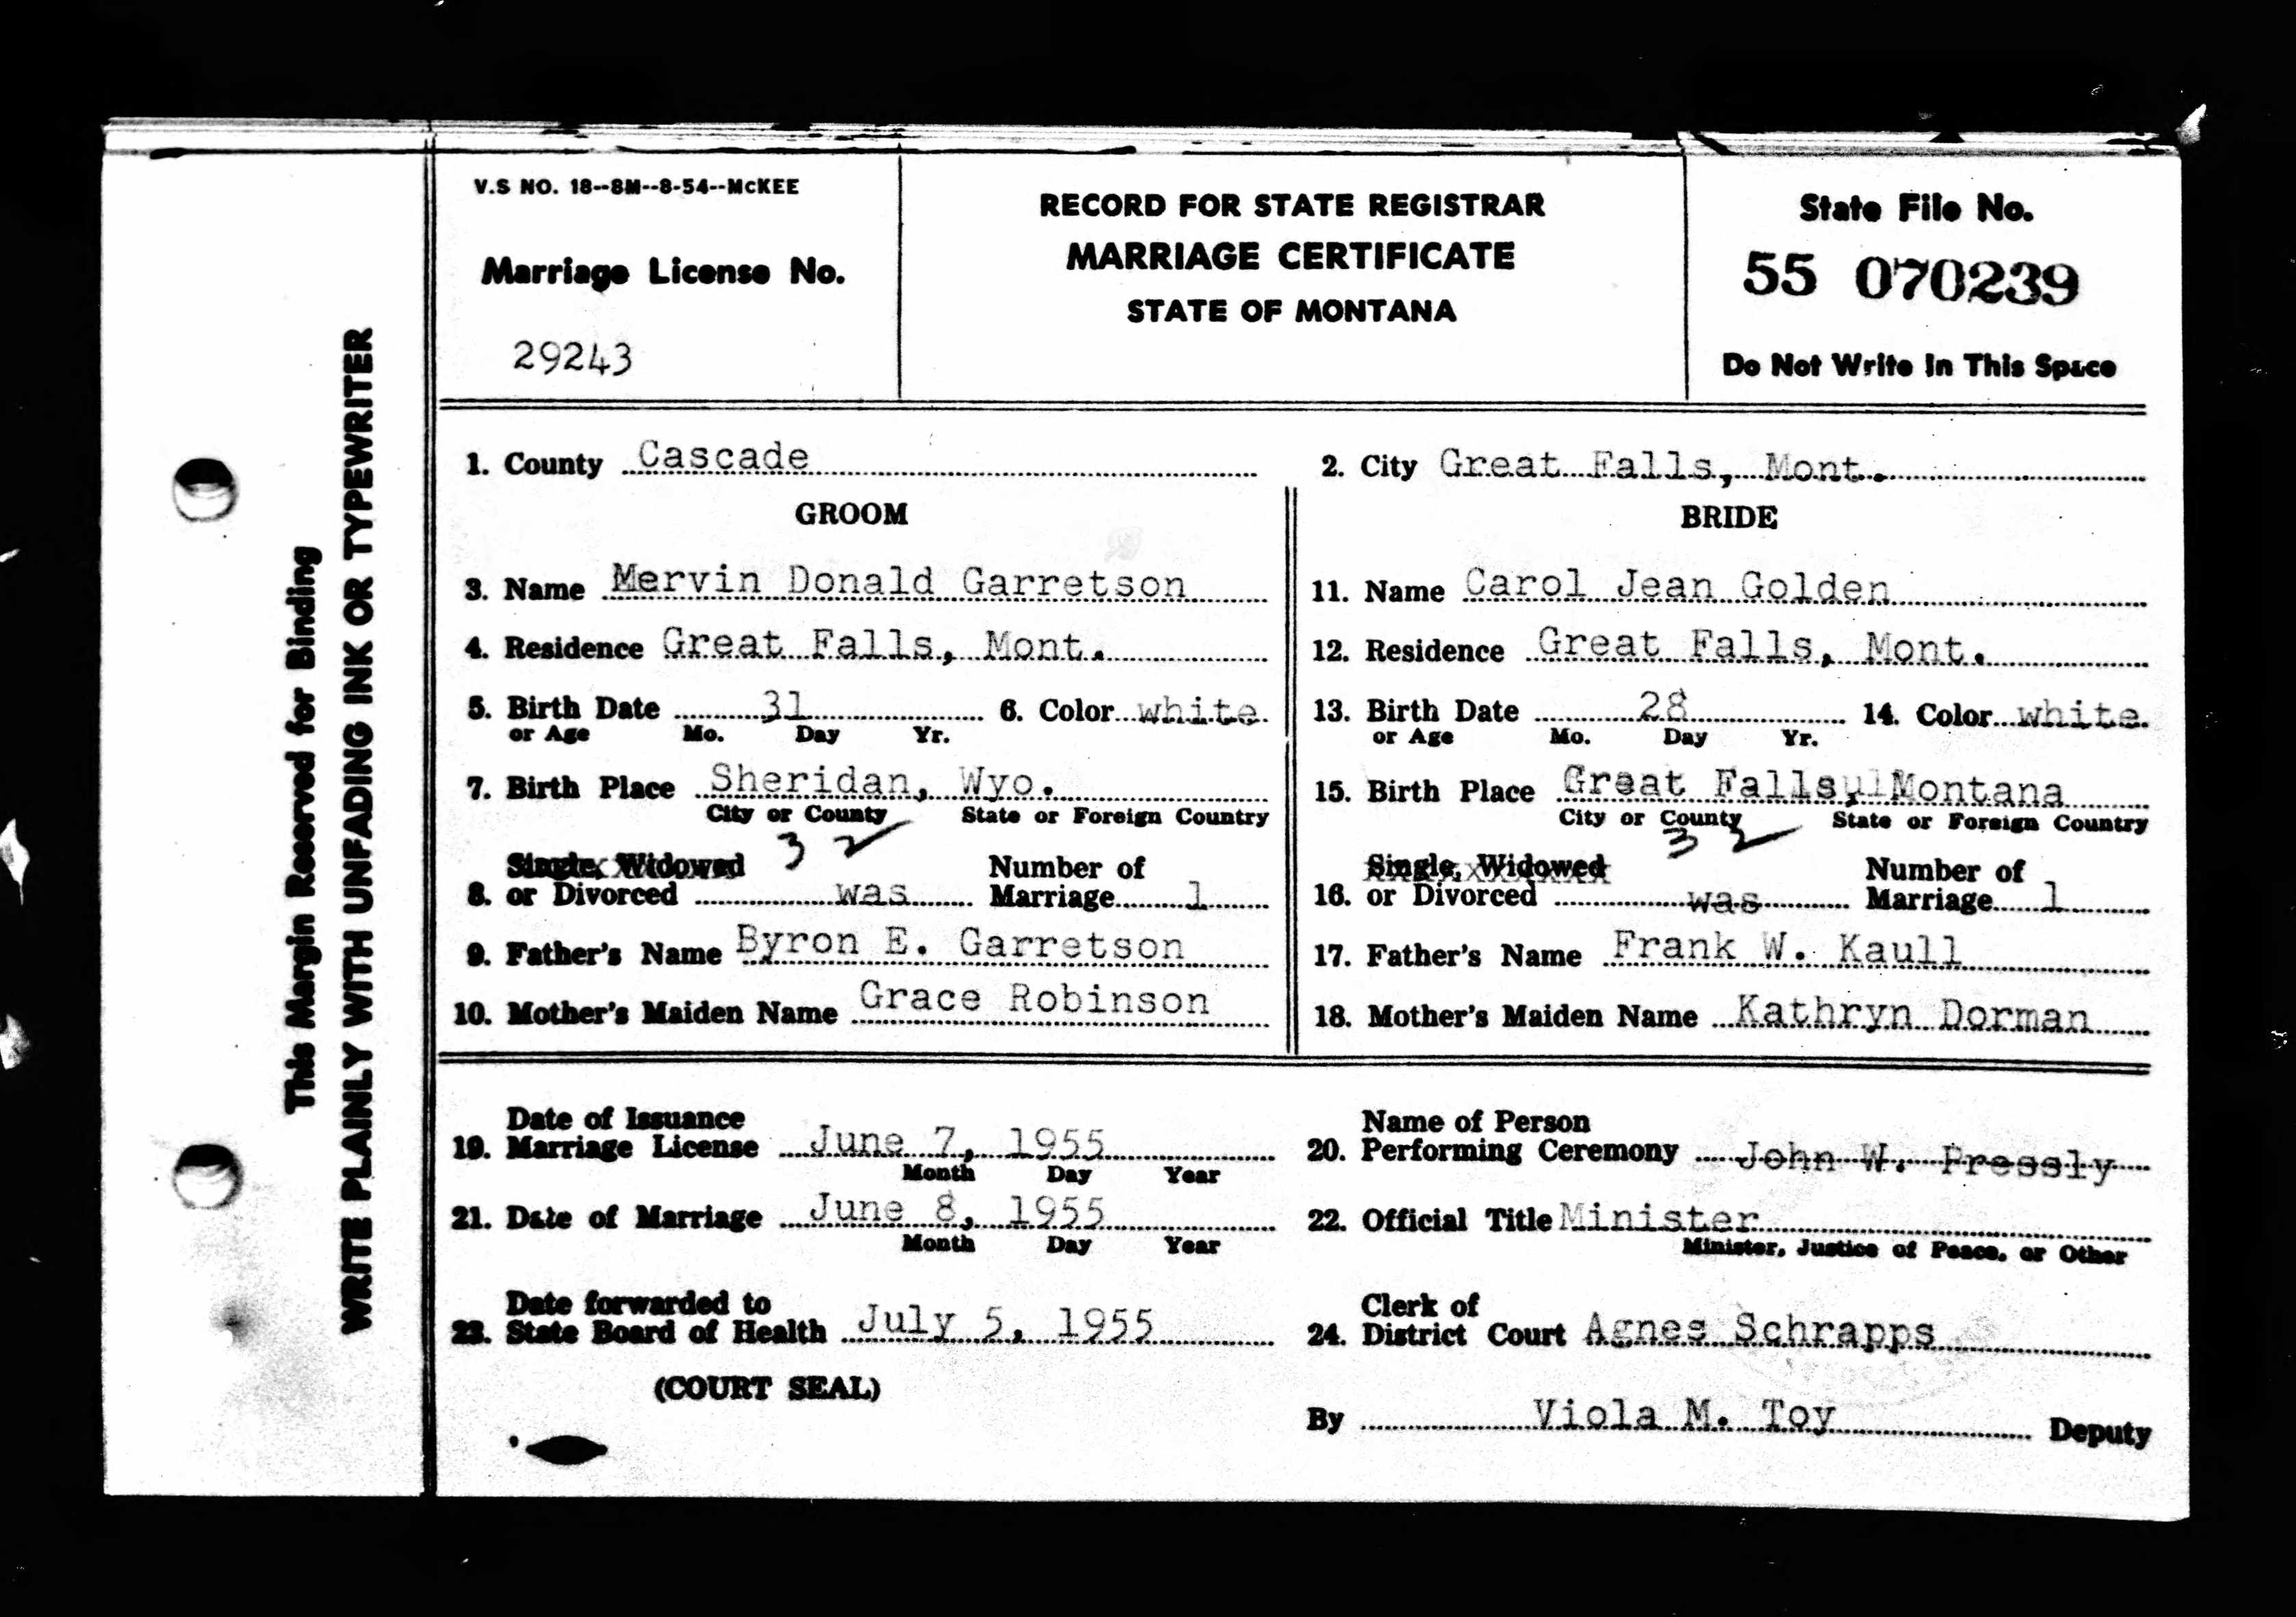 V.S NO. 18--8M--8-54--McKEE
Marriage License No.
29243
RECORD FOR STATE REGISTRAR
MARRIAGE CERTIFICATE
STATE OF MONTANA
State File No.
55 070239
Do Not Write In This Space
This Margin Reserved for Binding
WRITE PLAINLY WITH UNFADING INK OR TYPEWRITER
1. County Cascade
2. City Great Falls, Mont.
GROOM
3. Name Mervin Donald Garretson
4. Residence Great Falls, Mont.
5. Birth Date 31 6. Color white
or Age Mo. Day Yr.
7. Birth Place Sheridan, Wyo.
City or County State or Foreign Country
3 2
Single, Widowed Number of
8. or Divorced was Marriage 1
9. Father's Name Byron E. Garretson
10. Mother's Maiden Name Grace Robinson
BRIDE
11. Name Carol Jean Golden
12. Residence Great Falls, Mont.
13. Birth Date 28 14. Color white
or Age Mo. Day Yr.
15. Birth Place Great Falls, Montana
City or County State or Foreign Country
3 2
Single, Widowed Number of
16. or Divorced was Marriage 1
17. Father's Name Frank W. Kaull
18. Mother's Maiden Name Kathryn Dorman
Date of Issuance
19. Marriage License June 7, 1955
Month Day Year
Name of Person
20. Performing Ceremony John W. Pressly
21. Date of Marriage June 8, 1955
Month Day Year
22. Official Title Minister
Minister, Justice of Peace, or Other
Date forwarded to
23. State Board of Health July 5, 1955
Clerk of
24. District Court Agnes Schrapps
(COURT SEAL)
By Viola M. Toy Deputy